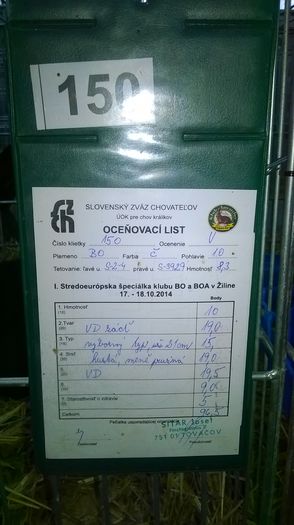 150
SLOVENSKÝ ZVÄZ CHOVATEĽOV
ÚOK pre chov králikov
OCEŇOVACÍ LIST
Číslo klietky 150 Ocenenie V
Plemeno BO Farba č Pohlavie 1.0
Tetovanie: ľavé u. S2-4 pravé u. S-3929 Hmotnosť 8,3
I. Stredoeurópska špeciálka klubu BO a BOA v Žiline
17. - 18.10.2014
Body
1. Hmotnosť 10
2. Tvar VD zadť 19,0
3. Typ výborný typ, uši 21cm 15
4. Srsť hustá, méně pružná 19,0
5. VD 19,5
6. 9,0
7. Starostlivosť o zdravie 5
Celkom: 96,5
Pečiatka usporiadateľa
SITAR Josef
751 01 TOVAČOV
Posudzovateľ